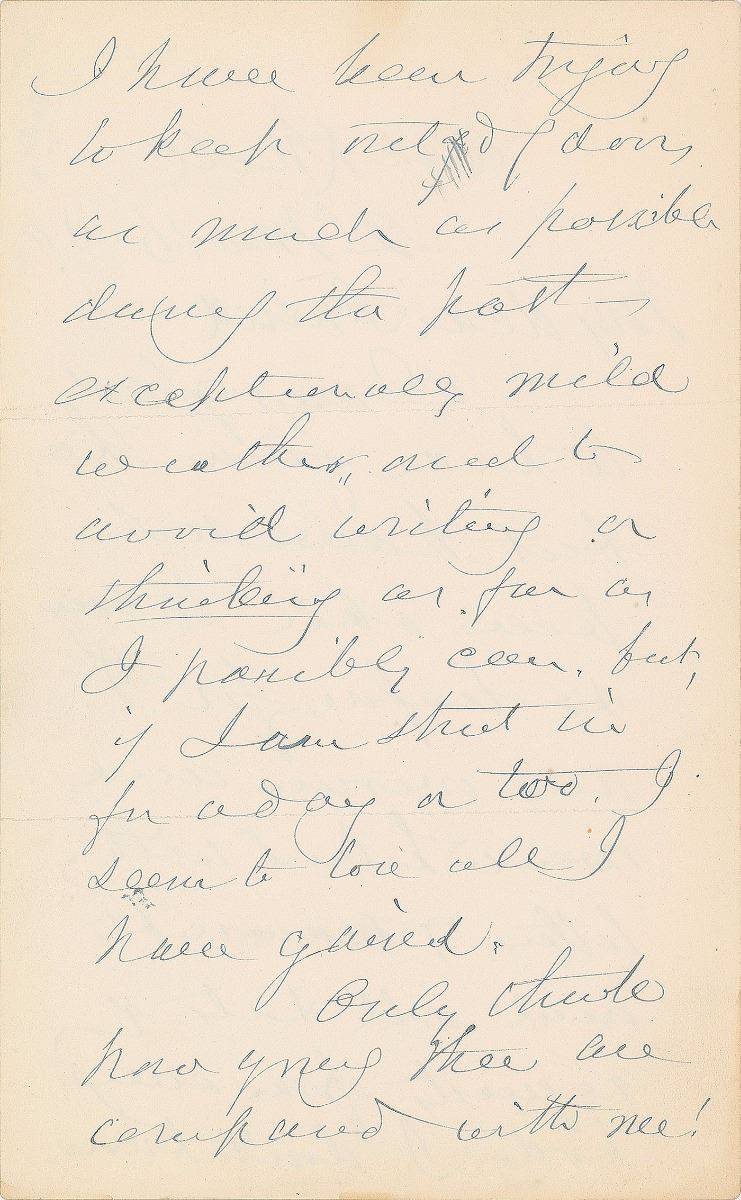 I have been trying
to keep out of doors
as much as possible
during the past
exceptionally mild
weather, and to
avoid writing or
thinking as far as
I possibly can. but,
if I am shut in
for a day or two, I
seem to lose all I
have gained.
Only think
how young thee are
compared with me!